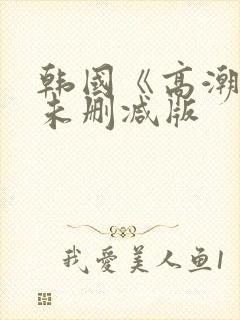 韩国《高潮
未删减版
我爱美人鱼1